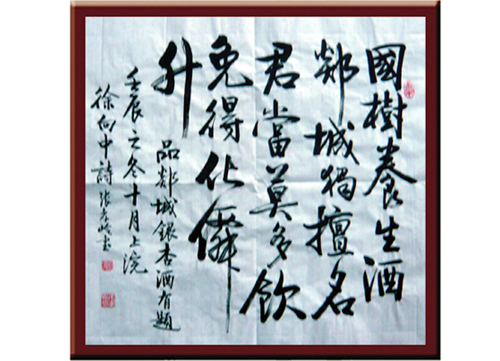 國樹養生酒
郯城獨擅名
君當莫多飲
免得化僊
升
品郯城銀杏酒有題
壬辰之冬十月上浣
徐向中詩 張